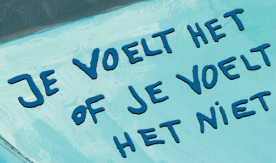 JE VOELT HET
OF JE VOELT
HET NIET